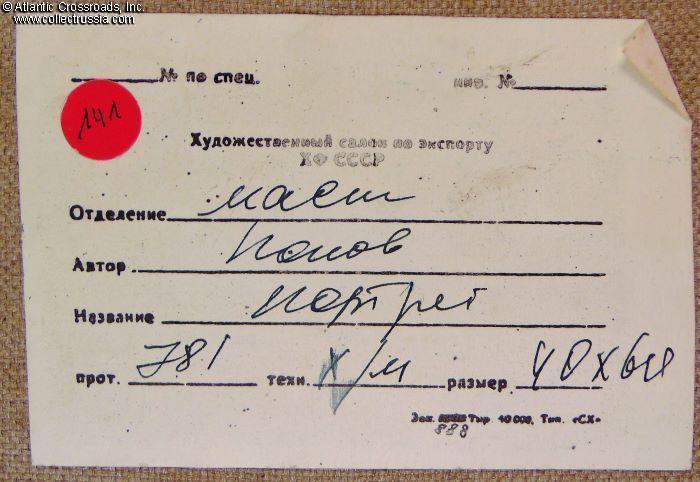 © Atlantic Crossroads, Inc.
www.collectrussia.com
№ по спец. инв. №
141
Художественный салон по экспорту
ХФ СССР
Отделение маст
Автор Попов
Название портрет
прот. 781 техн. х/м размер 40х
Зак. 888 Тир. 40 000, Тип. «СХ»